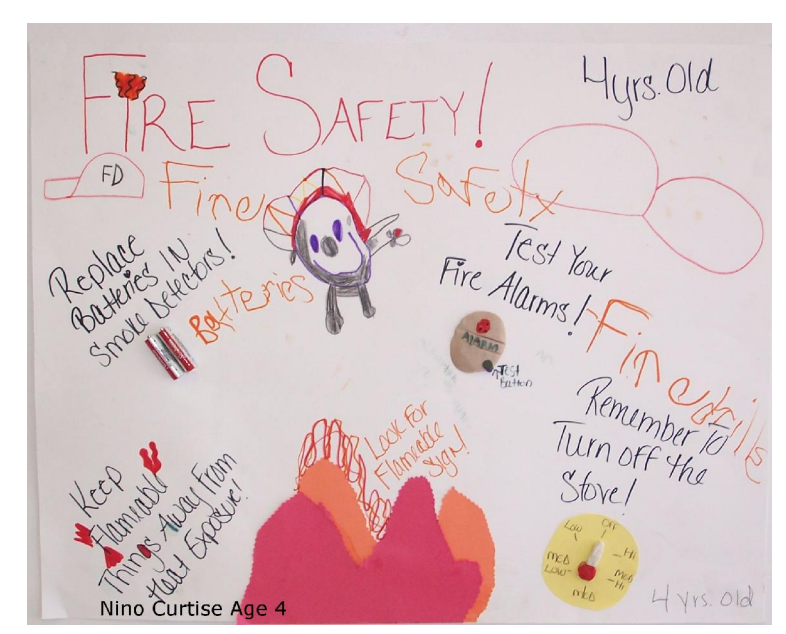 FIRE SAFETY!
4yrs. Old
FD
Fire Safety
Replace
Batteries IN
Smoke Detectors!
Batteries
Test Your
Fire Alarms!
ALARM
Test
button
Fire drills
Remember To
Turn off the
Stove!
Look For
Flameable
Sign!
Keep
Flameable
Things Away From
Heat Exposure!
Off
Low
Hi
MED
Low
MED
Hi
MED
4 yrs. old
Nino Curtise Age 4